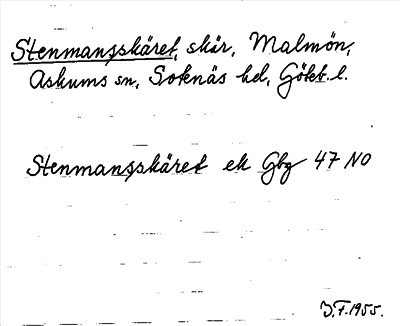 Stenmansskäret, skär, Malmön,
Askums sn, Sotenäs hd, Götb. l.
Stenmansskäret ek Gbg 47 NO
J.F. 1955.